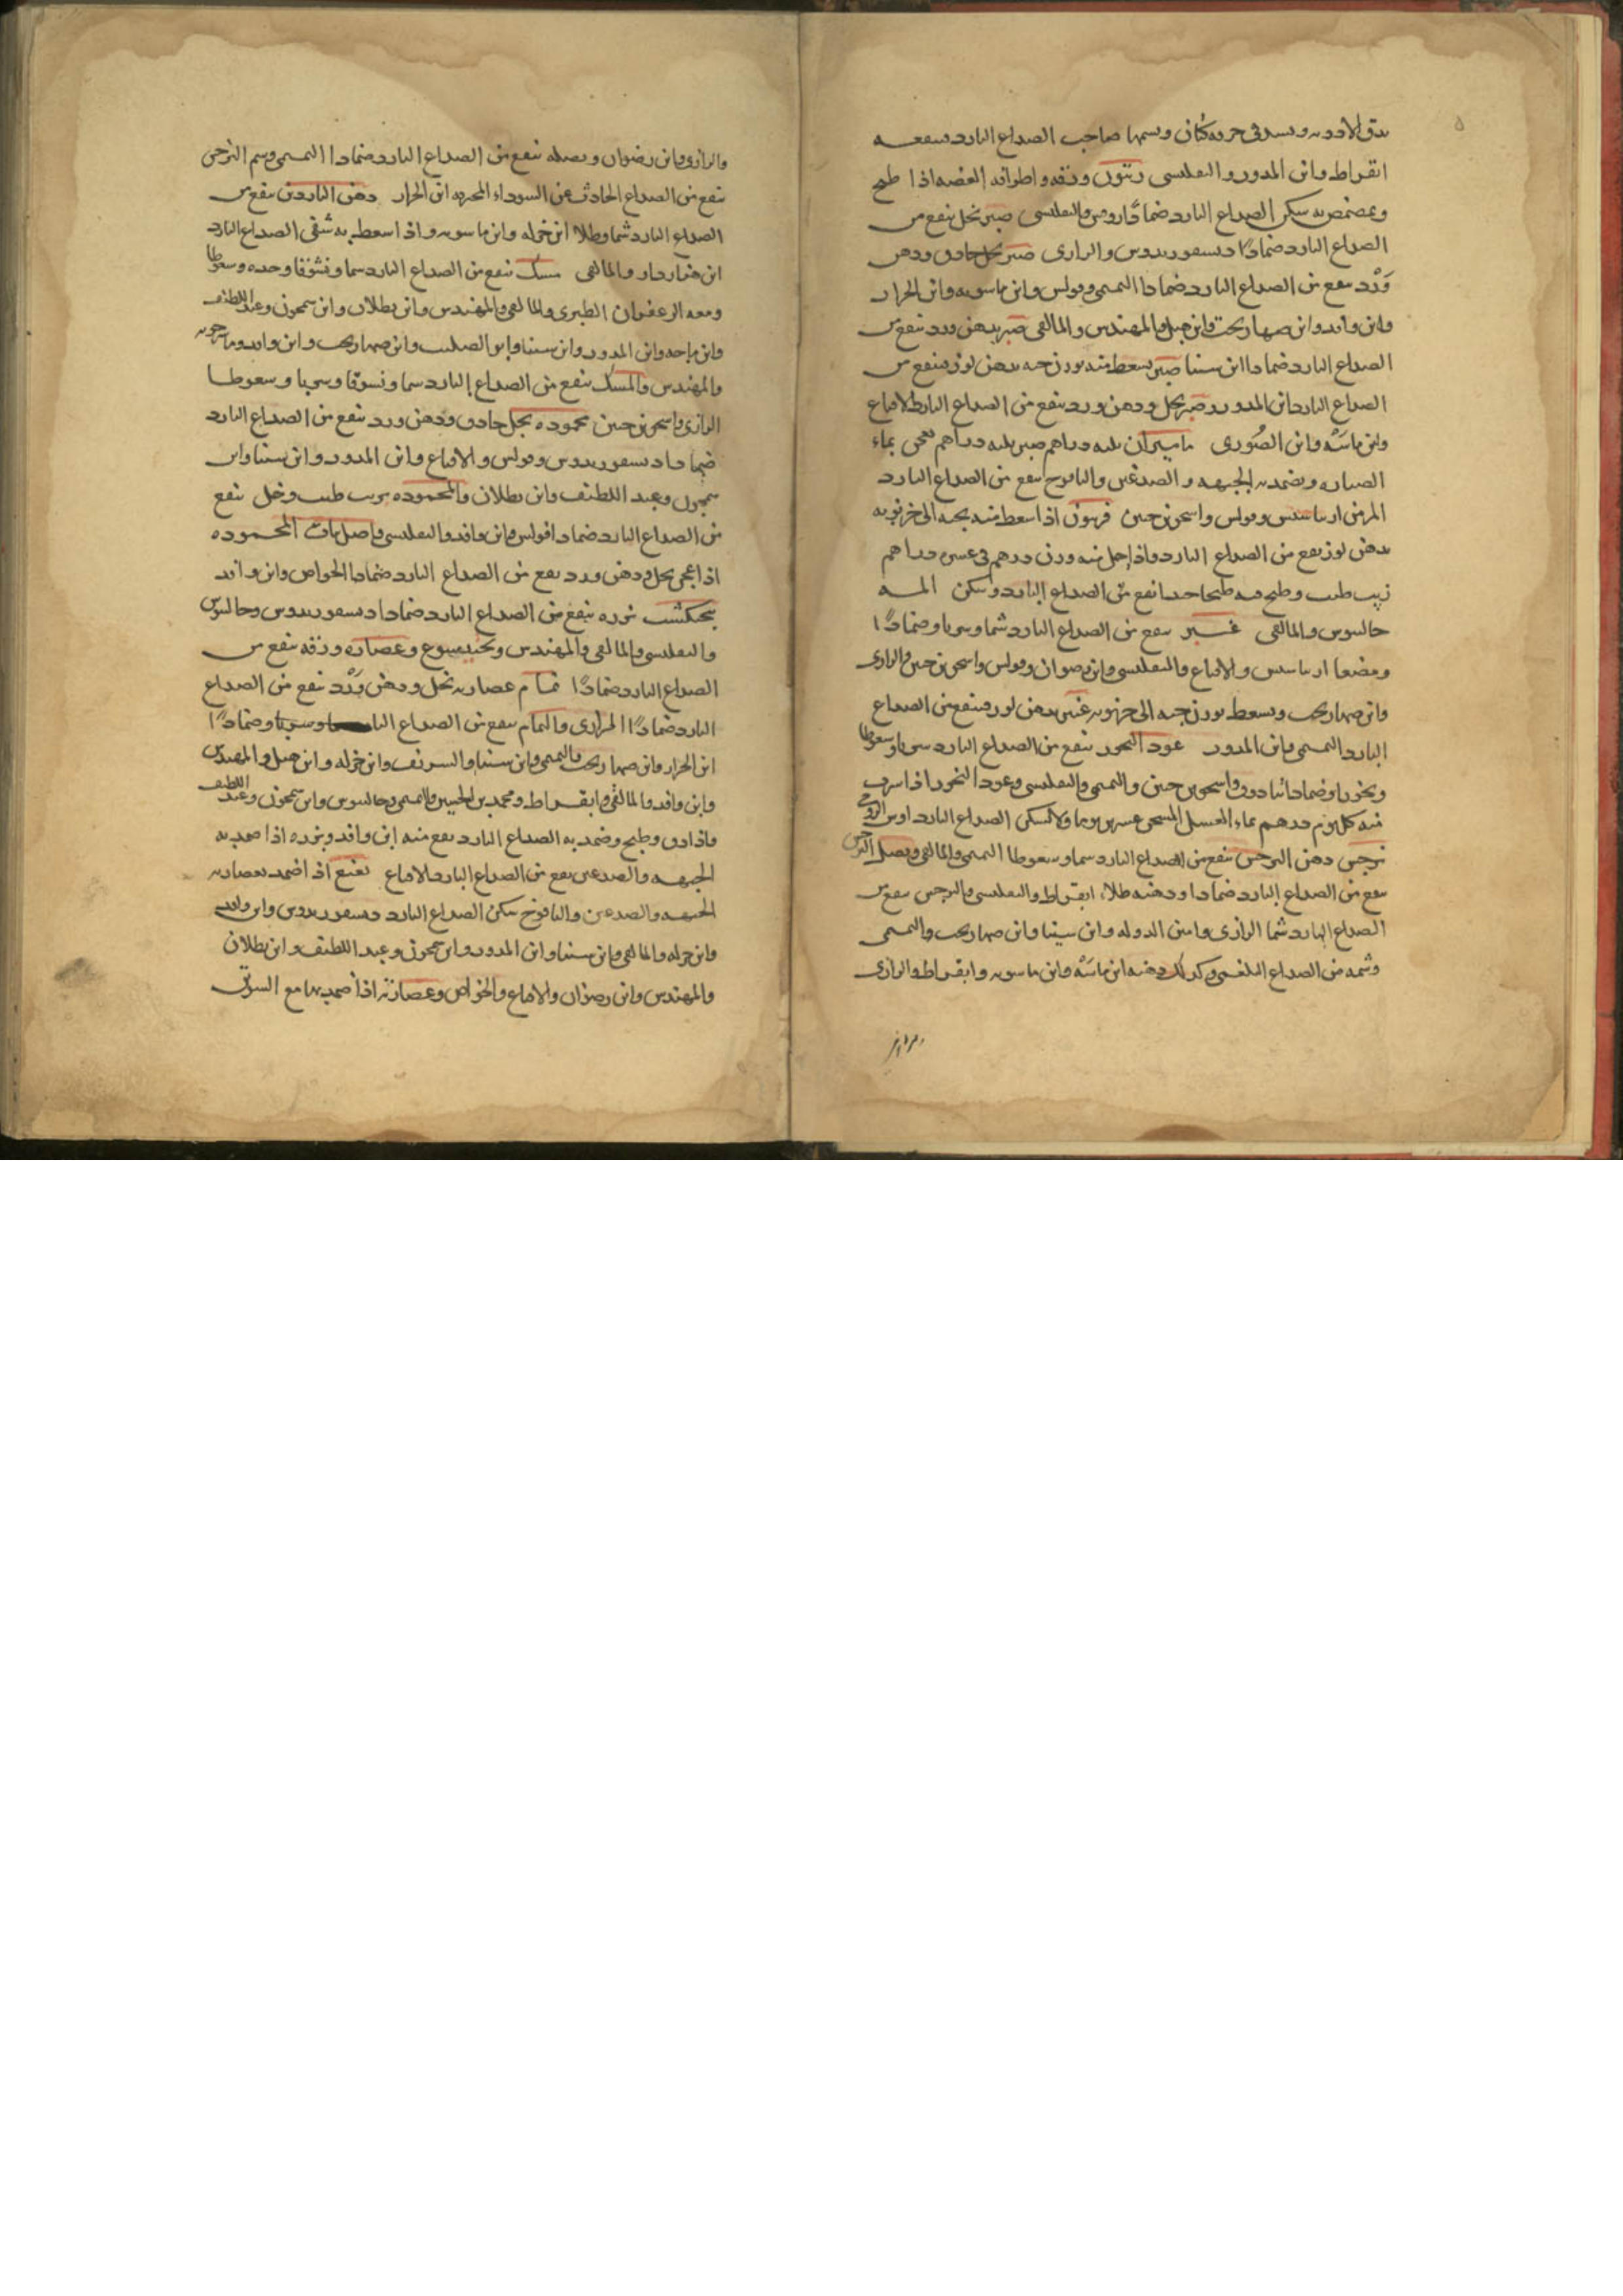 ٥
يدق الادويه ويسد في خرقه كتان ويشمها صاحب الصداع البارد ينفعه
ابقراط وابن المدور والتفليسى زيتون ورقه واطرافه الغضه اذا طبخ
وتمضمض به سكن الصداع البارد ضمادًا روفس والتفليسى صبر بخل ينفع من
الصداع البارد ضمادًا ديسقوريدوس والرازى صبر بخل حاذق ودهن
وَرْد ينفع من الصداع البارد ضمادا التميمى وبولس وابن ماسويه وابن الجزار
وابن وافد وابن صهاربخت وابن هبل والمهندس والمالقى صبر بدهن ورد ينفع من
الصداع البارد ضمادا ابن سينا صبر يسعط منه بوزن حبه بدهن لوز فينفع من
الصداع البارد ابن المدور وصبر بخل ودهن ورد ينفع من الصداع البارد الاقناع
وابن ماسَّه وابن الصُورى ماميران ثلثه دراهم صبر ثلثه دراهم تعجن بماء
ويضمد به الجبهه والصدغين واليافوخ ينفع من الصداع البارد
المزمن اريباسيس وبولس واسحق بن حنين فربيون اذا اسعط منه بحبه الى خرنوبه
بدهن لوز نفع من الصداع البارد واذا جعل منه وزن درهم فى عشره دراهم
زيت طيب وطبخ فيه طبخا جيدا نفع من الصداع البارد وسكن المه
جالينوس والمالقى عنبر ينفع من الصداع البارد شما وشربا وضمادًا
ومضغا اريباسيس والاقناع والتفليسى وابن رضوان وبولس واسحق بن حنين والرازى
وابن صهاربخت ويسعط بوزن حبه الى خرنوبه عنبر بدهن لوز فينفع من الصداع
البارد التميمى وابن المدور عود البخور ينفع من الصداع البارد شربا وسعوطا
وبخورا وضمادا تيادوق واسحق بن حنين والتميمى والتفليسى وعود البخور اذا شرب
منه كل يوم درهم بماء العسل المسخن عشرين يوما ولاء سكن الصداع البارد
نرجس دهن النرجس ينفع من الصداع البارد شما وسعوطا التميمى والمالقى وبصل النرجس
ينفع من الصداع البارد ضمادا ودهنه طلاء ابقراط والتفليسى والنرجس ينفع من
الصداع البارد شما الرازى وامين الدوله وابن سينا وابن صهاربخت والتميمى
وشمه من الصداع البلغمى وكذلك دهنه ابن ماسَّه وابن ماسويه وابقراط والرازى
والرازى وابن رضوان وبصله ينفع من الصداع البارد ضمادا التميمى وشم النرجس
ينفع من الصداع الحادث عن السوداء المحترقه ابن الجزار دهن الناردين ينفع من
الصداع البارد شما وطلاء ابن جزله وابن ماسويه واذا اسعط به شفى الصداع البارد
والمالقى مسك ينفع من الصداع البارد شما ونشوقا وحده وسعوطا
ومعه الزعفران الطبرى والمالقى والمهندس وابن بطلان وابن سمجون وعبد اللطيف
وابن ماجه وابن المدور وابن سينا وابو الصلت وابن صهاربخت وابن وافد وماسرجويه
والمهندس والمسك ينفع من الصداع البارد شما ونشوقا وشربا وسعوطا
الرازى واسحق بن حنين محموده بخل حاذق ودهن ورد ينفع من الصداع البارد
ضمادا ديسقوريدوس وبولس والاقناع وابن المدور وابن سينا وابن
سمجون وعبد اللطيف وابن بطلان والمحموده بزيت طيب وخل ينفع
من الصداع البارد ضمادا بولس وابن وافد والتفليسى واصل نبات المحموده
اذا عجن بخل ودهن ورد نفع من الصداع البارد ضمادا الخواص وابن وافد
بنجنكشت بزره ينفع من الصداع البارد ضمادا ديسقوريدوس وجالينوس
والتفليسى والمالقى والمهندس وبختيشوع وعصاره ورقه ينفع من
الصداع البارد ضمادًا نمام عصارته بخل ودهن وَرْد ينفع من الصداع
البارد ضمادًا الرازى والنمام ينفع من الصداع البارد وشربا وضمادًا
ابن الجزار وابن صهاربخت والتميمى وابن سينا والشريف وابن جزله وابن هبل والمهندس
وابن وافد والمالقى وابقراط ومحمد بن الحسين والتميمى وجالينوس وابن سمجون وعبد اللطيف
واذا دق وطبخ وضمد به الصداع البارد نفع منه ابن وافد وبزره اذا ضمد به
الجبهه والصدغين نفع من الصداع البارد الاقناع نعنع اذا ضمد بعصارته
الجبهه والصدغين واليافوخ سكن الصداع البارد ديسقوريدوس وابن وافد
وابن جزله والمالقى وابن سينا وابن المدور وابن سمجون وعبد اللطيف وابن بطلان
والمهندس وابن رضوان والاقناع والخواص وعصارته اذا ضمد بها مع السويق